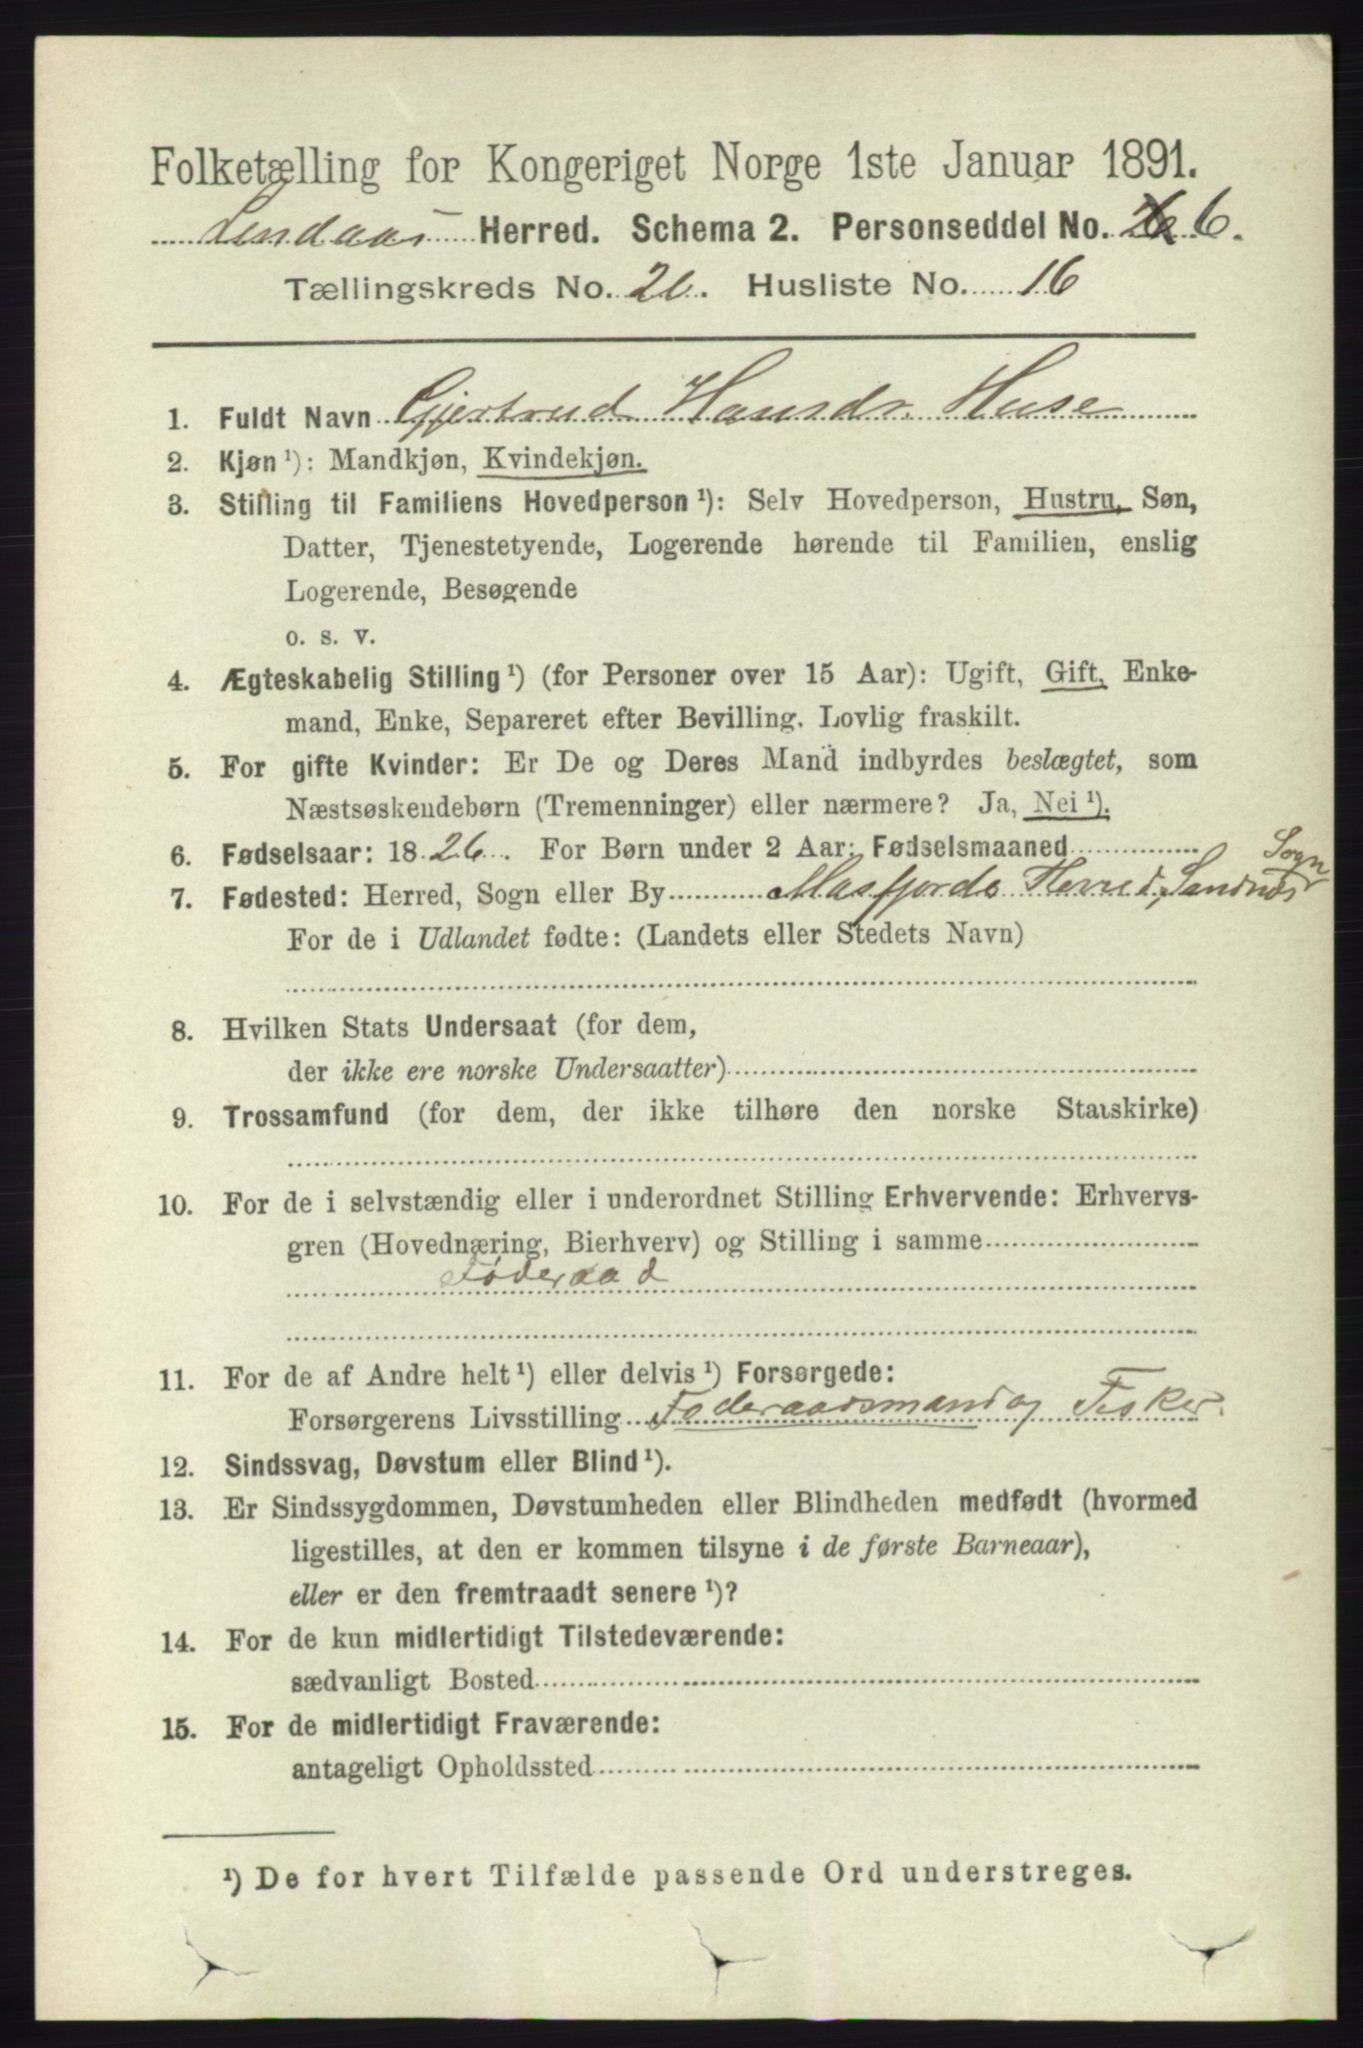 Folketælling for Kongeriget Norge 1ste Januar 1891.
Lindaas Herred. Schema 2. Personseddel No. 6.
Tællingskreds No. 26. Husliste No. 16
1. Fuldt Navn Gjertrud Hansdr. Huse
2. Kjøn ¹): Mandkjøn, Kvindekjøn.
3. Stilling til Familiens Hovedperson ¹): Selv Hovedperson, Hustru, Søn,
Datter, Tjenestetyende, Logerende hørende til Familien, enslig
Logerende, Besøgende
o. s. v.
4. Ægteskabelig Stilling ¹) (for Personer over 15 Aar): Ugift, Gift, Enke-
mand, Enke, Separeret efter Bevilling. Lovlig fraskilt.
5. For gifte Kvinder: Er De og Deres Mand indbyrdes beslægtet, som
Næstsøskendebørn (Tremenninger) eller nærmere? Ja, Nei ¹).
6. Fødselsaar: 1826. For Børn under 2 Aar: Fødselsmaaned
7. Fødested: Herred, Sogn eller By Masfjorde Herred, Sandnæs Sogn
For de i Udlandet fødte: (Landets eller Stedets Navn)
8. Hvilken Stats Undersaat (for dem,
der ikke ere norske Undersaatter)
9. Trossamfund (for dem, der ikke tilhøre den norske Statskirke)
10. For de i selvstændig eller i underordnet Stilling Erhvervende: Erhvervs-
gren (Hovednæring, Bierhverv) og Stilling i samme
Føderaad
11. For de af Andre helt ¹) eller delvis ¹) Forsørgede:
Forsørgerens Livsstilling Føderaadsmand og Fisker.
12. Sindssvag, Døvstum eller Blind ¹).
13. Er Sindssygdommen, Døvstumheden eller Blindheden medfødt (hvormed
ligestilles, at den er kommen tilsyne i de første Barneaar),
eller er den fremtraadt senere ¹)?
14. For de kun midlertidigt Tilstedeværende:
sædvanligt Bosted
15. For de midlertidigt Fraværende:
antageligt Opholdssted
¹) De for hvert Tilfælde passende Ord understreges.